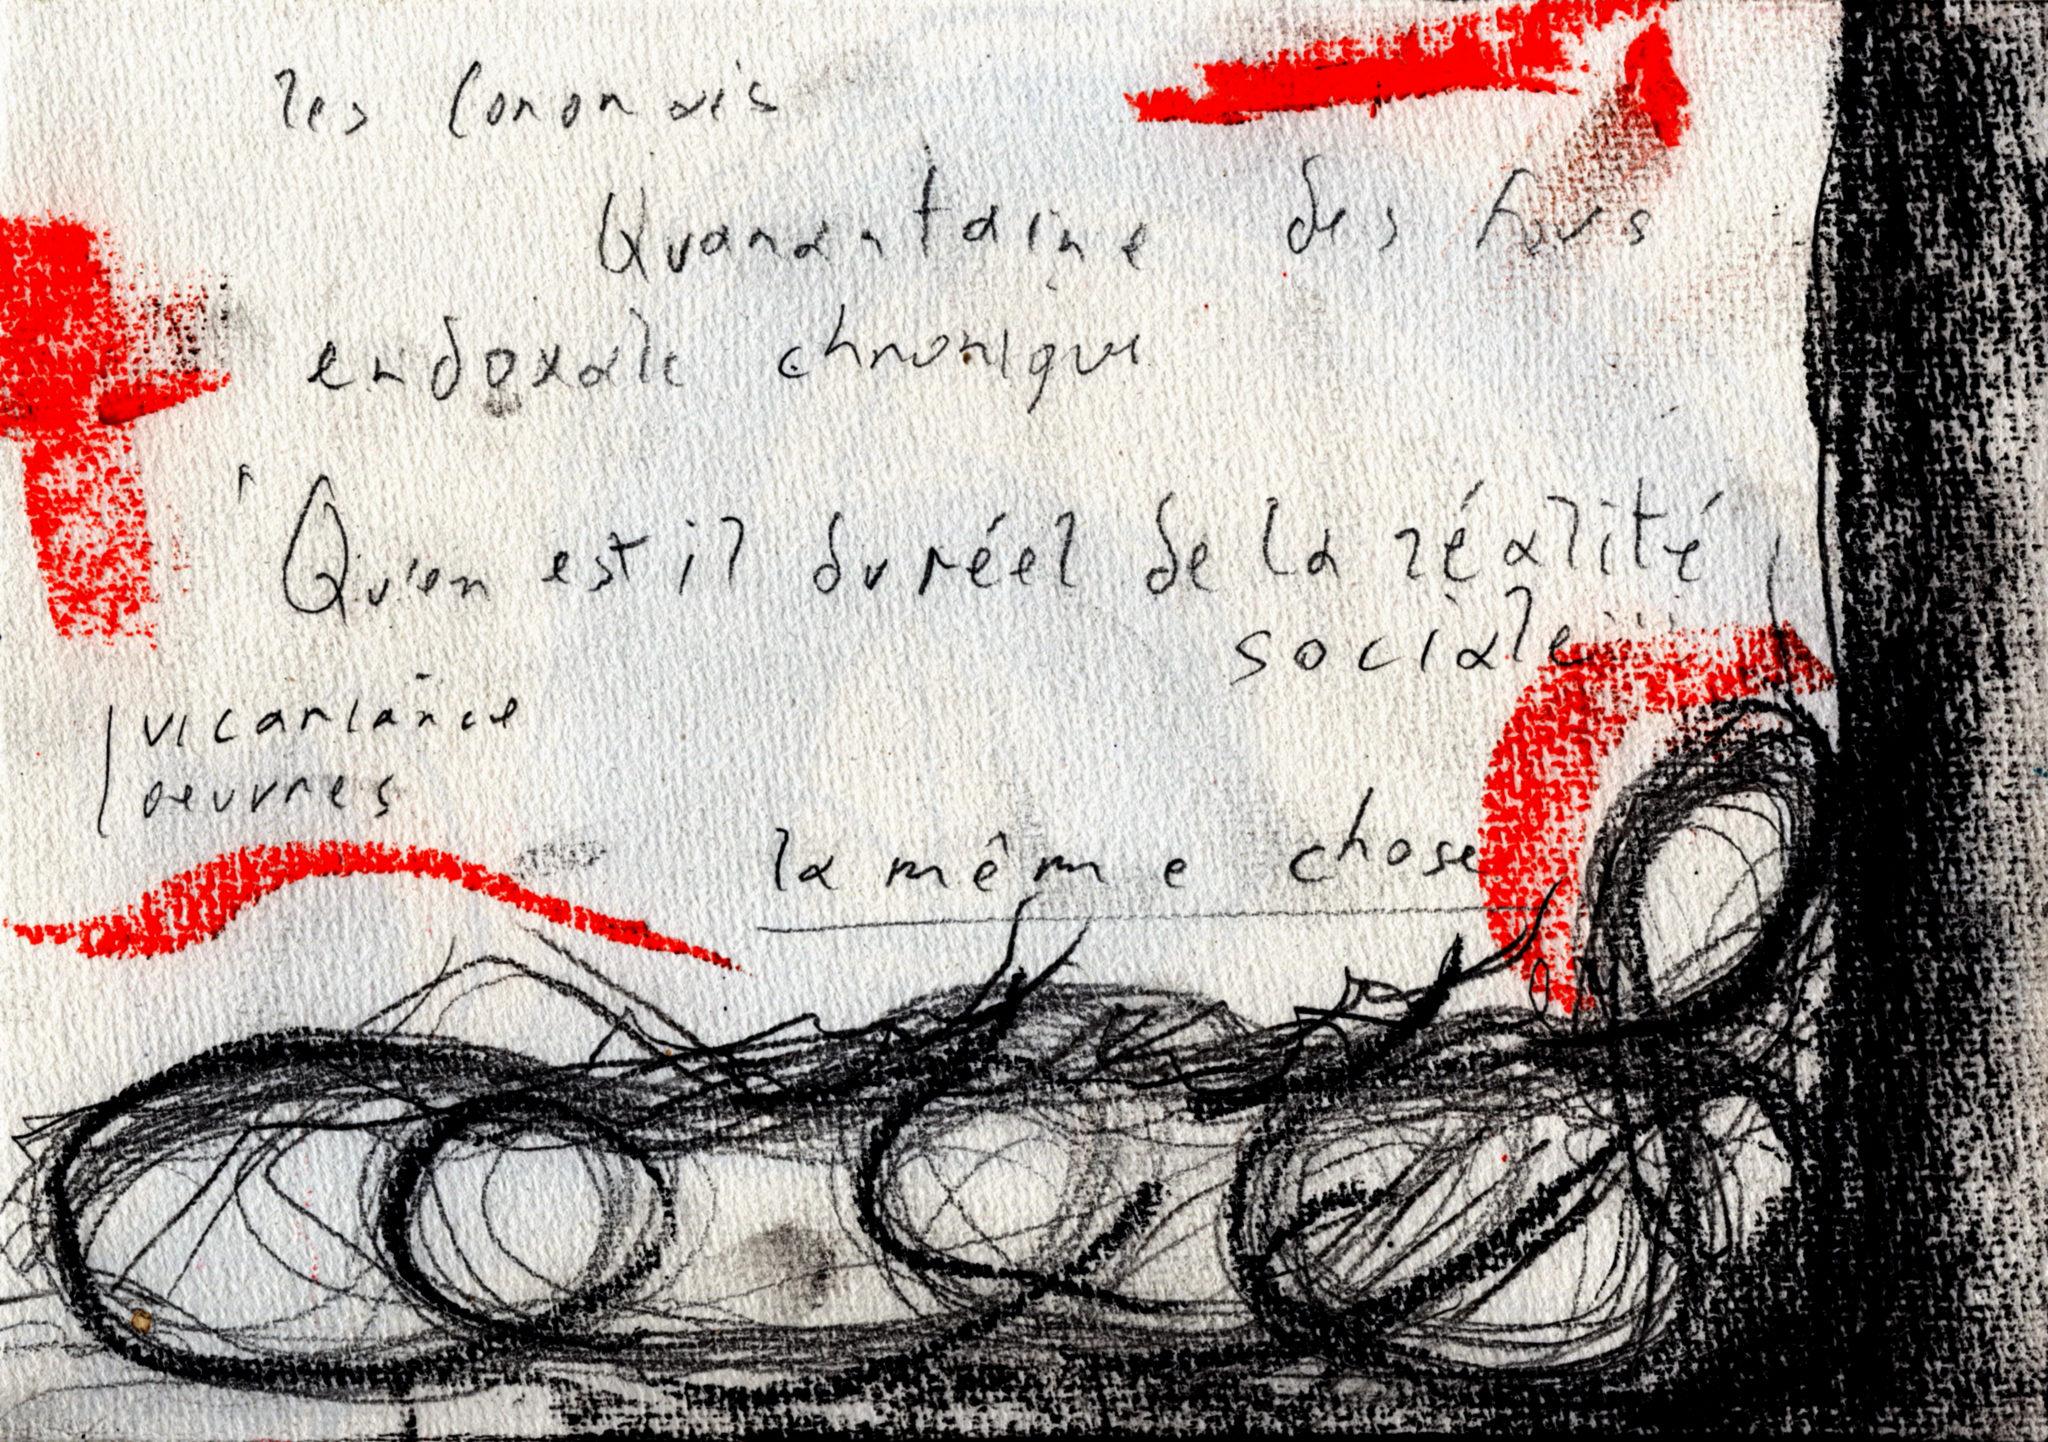 les
Quarantaine des fous
endoxale chronique
"Qu'en est il du réel de la réalité
sociale
vicariance
oeuvres
la même chose